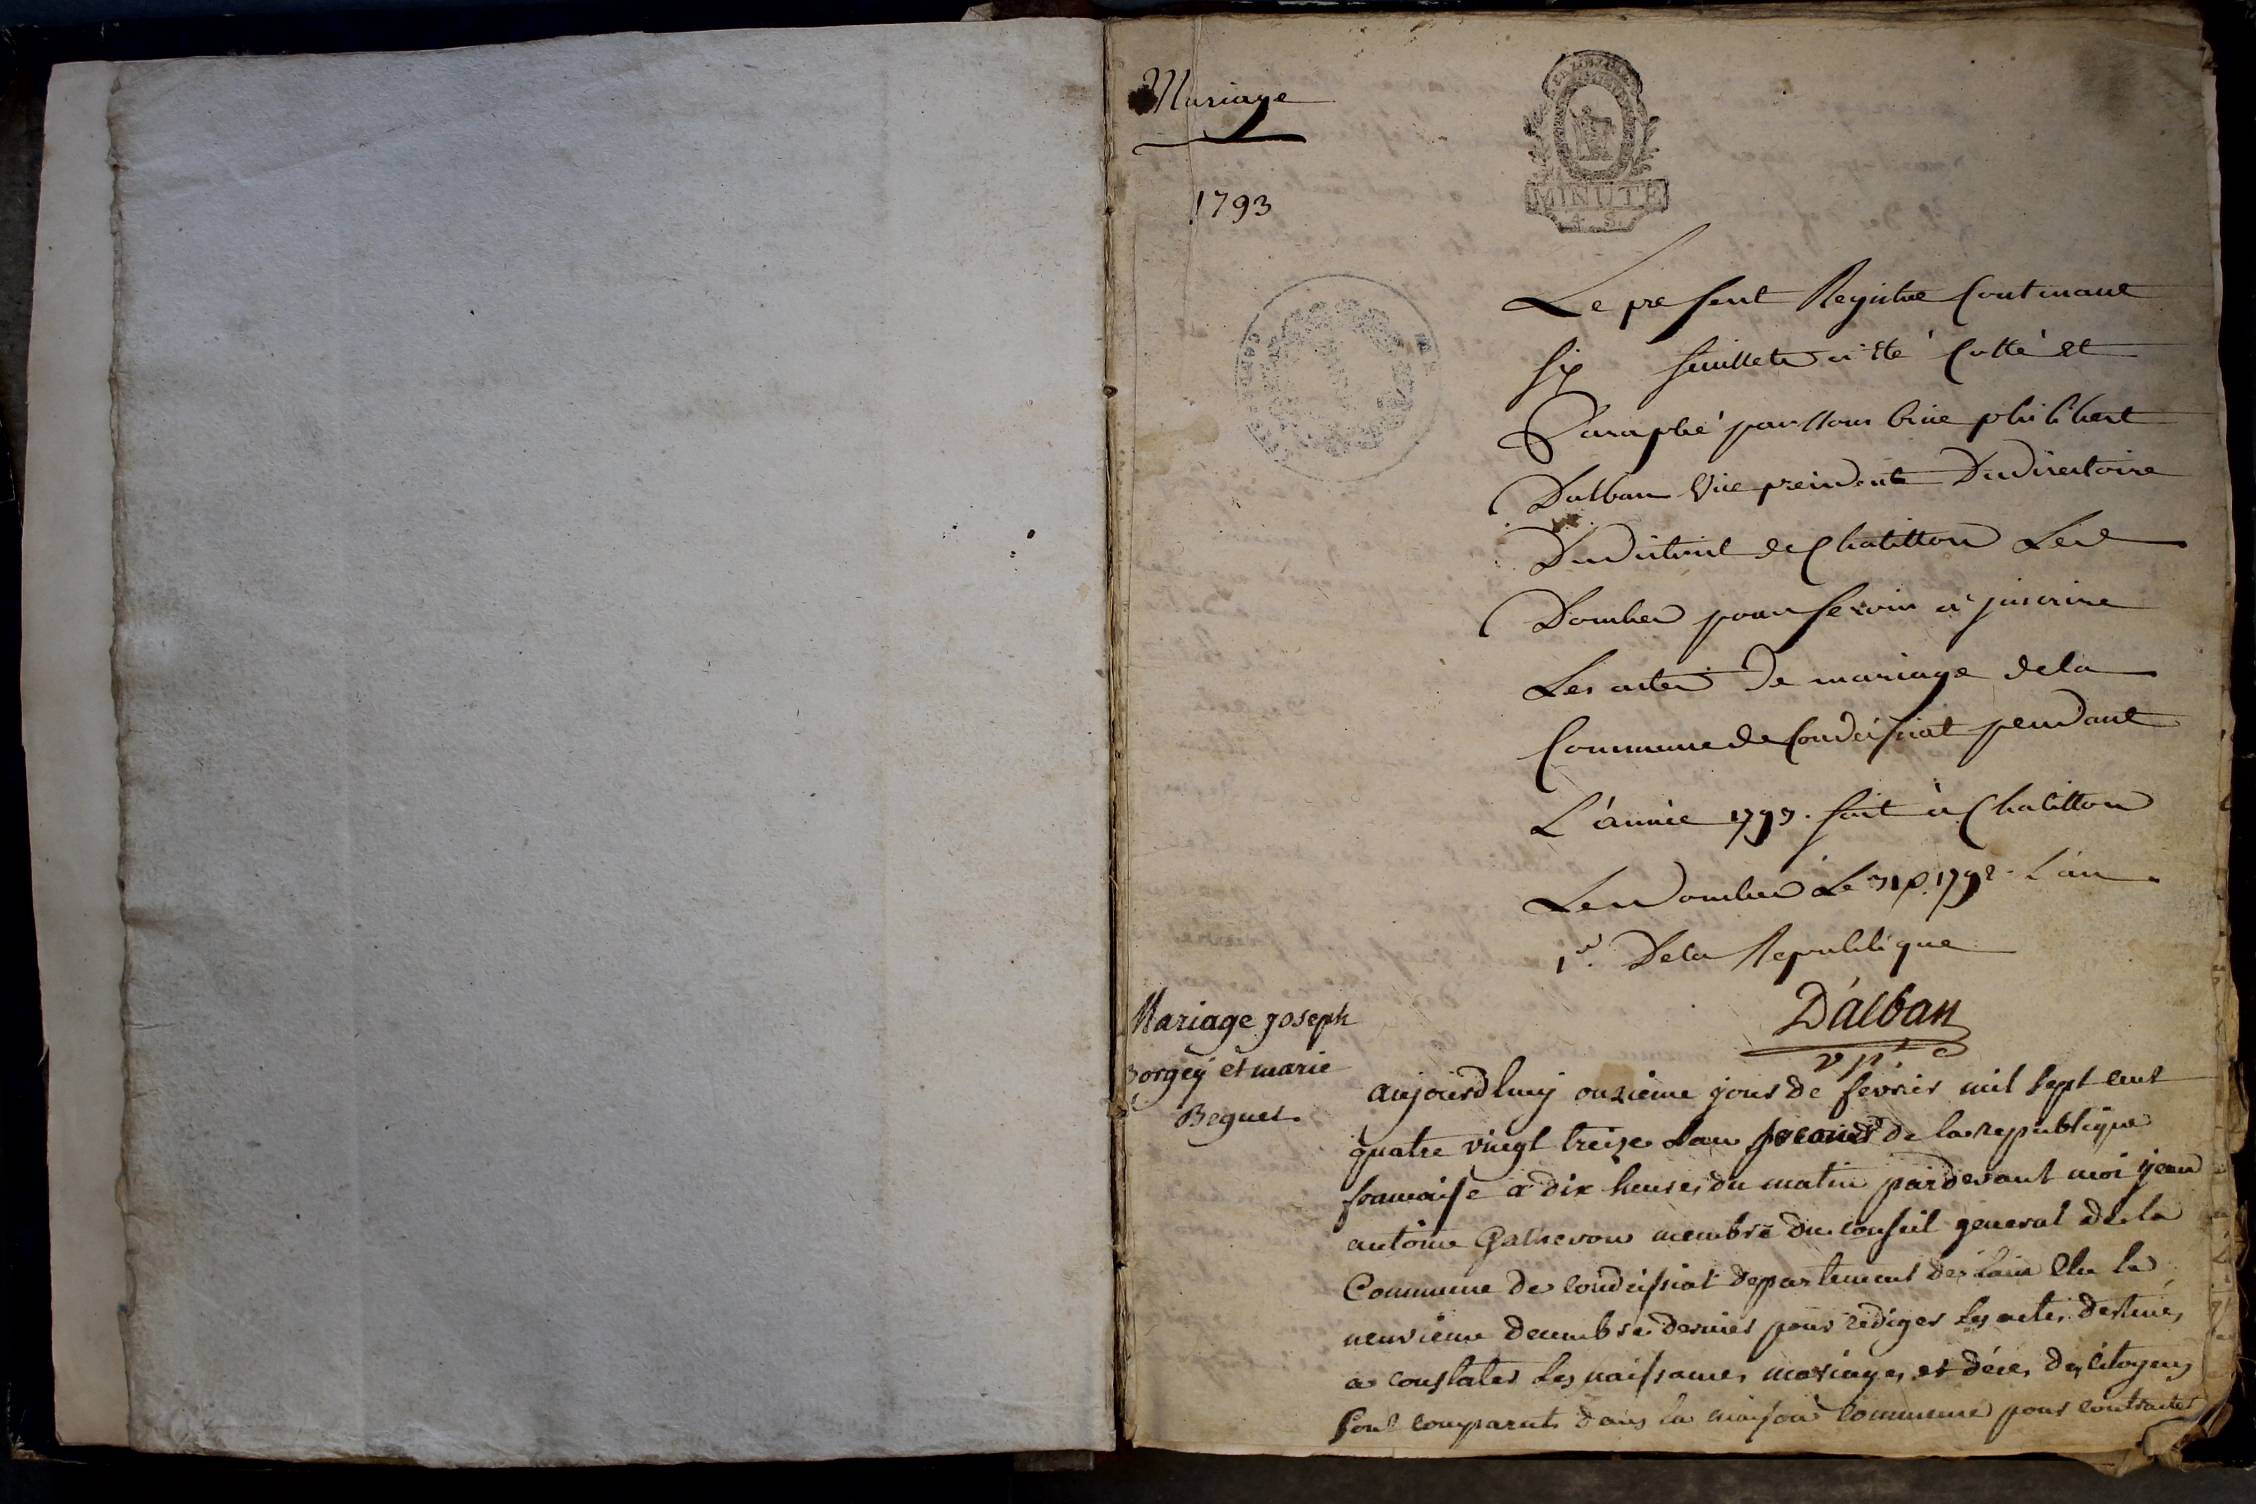 Mariage
1793
MINUTE
4. S.
Le present Registre Contenant
six feuillets a été Cotté et
Paraphé par Nous Cine philibert
Dalban Vice president Du directoire
Du district de Chatillon Les
Dombes pour servir a jnscrire
Les actes De mariage de la
Commune de Condeissiat pendant
L'année 1793. fait à Chatillon
Les Dombes Le 31 Xbre 1792. L'an
1er. De la Republique
D'alban
v. pt
Mariage joseph
Borgey et marie
Beguet.
aujourdhuy onzieme jour de fevrier mil sept cent
quatre vingt treize lan second de la republique
francaise a dix heures du matin pardevant moi jean
antoine Gathevon membre du conseil general de la
Commune de condeissiat departement de lain elu le
neuvieme decembre dernier pour rediger les actes destinés
a constater les naissances mariages et décés des citoyens
sont comparuts dans la maison commune pour contracter